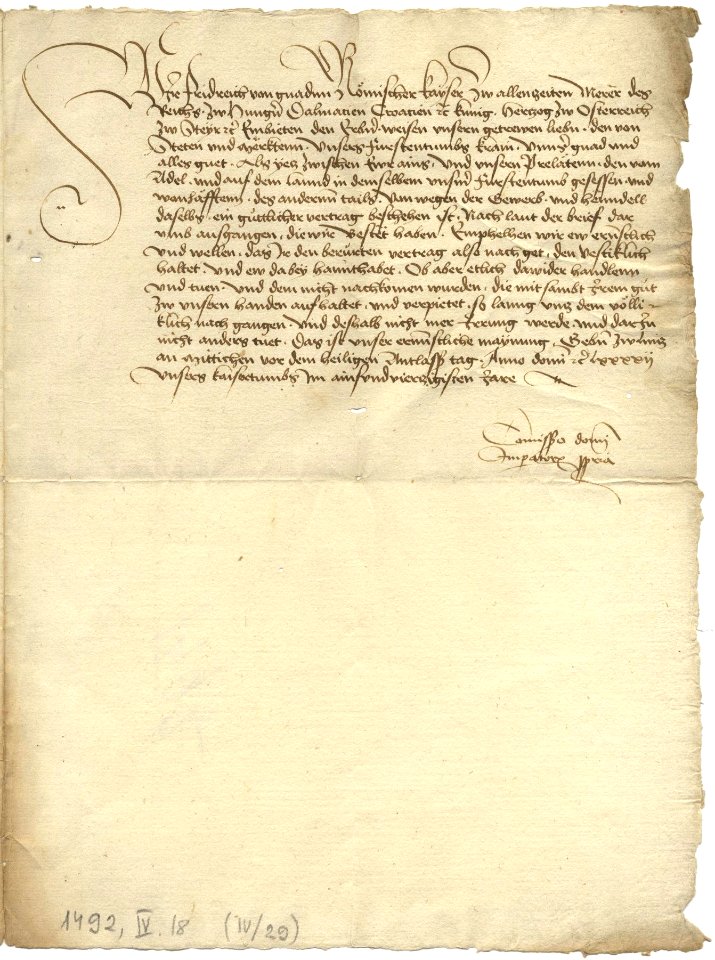 Wir Fridreich von gnaden Römischer kayser Zw allenzeiten Merer des
Reichs. zw Hungern Dalmacien Croacien etc kunig. Hertzog zw Osterreich
zw Steyr etc Embieten den Erbern weisen unsern getrewen lieben. den von
Steten und Merckten. unsers Furstentumbs Krain. unser gnad und
alles guet. Als yetz zwischen Ewr ains. und unsern Prelaten. den vom
Adel. und auf dem lannd in demselben unserm Furstentumb gesessen. und
wonhafften. des andern tails. von wegen der Gewerb. und henndell
daselbs. ein gütlicher vertrag beschehen ist. Nach laut der brief. dar
umb ausgangen, die wir bestet haben. Emphelhen wir ew ernstlich
und wellen. daz Ir den berurten vertrag also nach get. den vestiklich
haltet. und ew dabey hannthabet. Ob aber etlich dawider handlenn
und tuen. und dem nicht nachkomen wurden. die mitsambt Irem gut
zw unsern handen aufhaltet. und verpietet. so lanng unz dem völli-
klich nach gangen. und deshalb nicht mer Irrung werde. und darInn
nicht anders tuet. Das ist unser ernnstliche maynung. Geben zw Linz
an Mittichen vor dem heiligen Antlass tag. Anno domini etc Lxxxxij
unsers kaisertumbs Im ainsundvierzigisten Jare
Comissio domini
Imperatoris propria
1492, IV. 18 (IV/29)